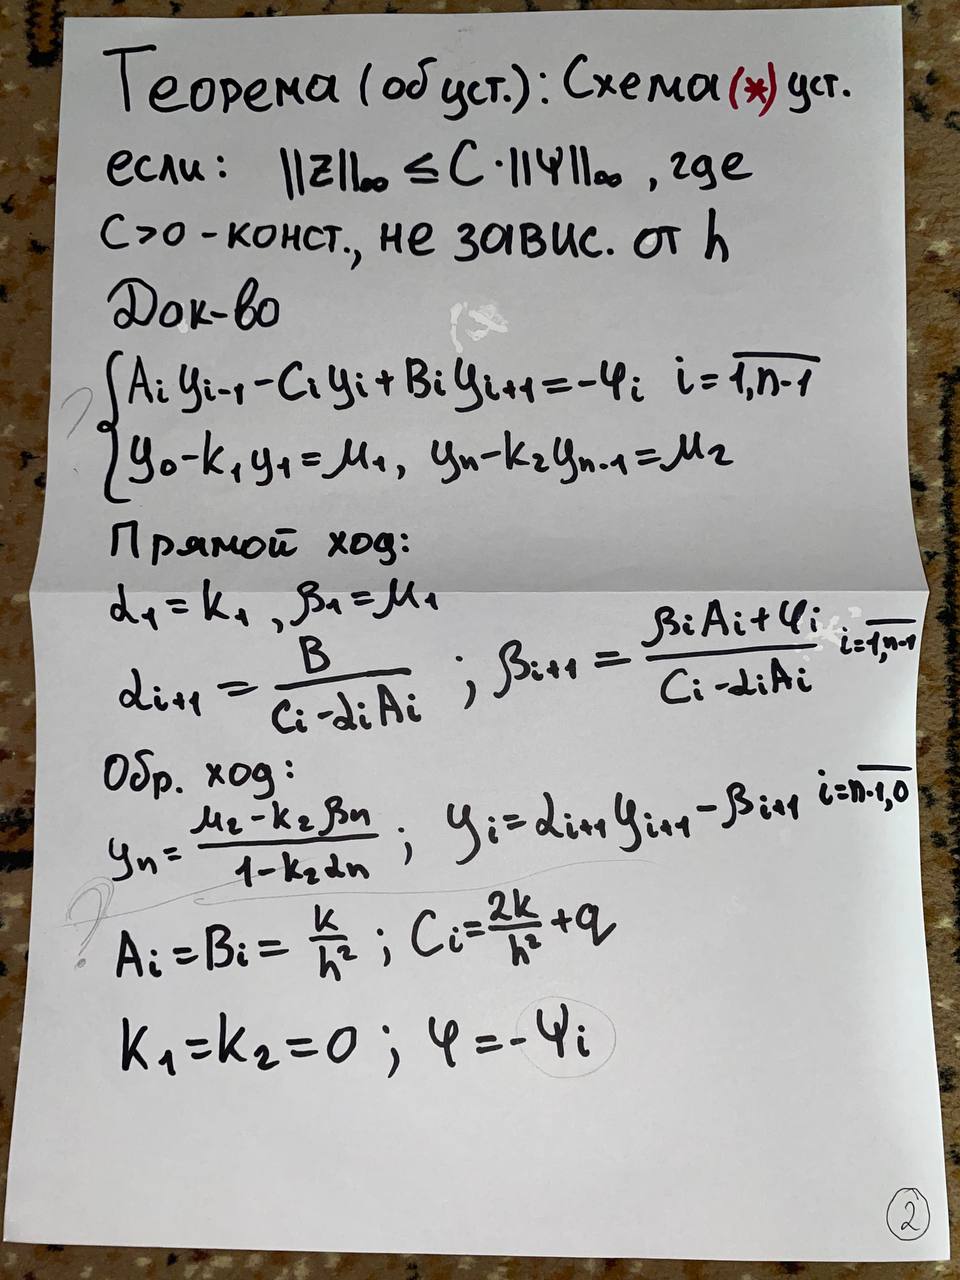 Теорема (об уст.): Схема (*) уст.
если: ||z||∞ ≤ C·||Ψ||∞, где
C>0 - конст., не завис. от h
Док-во
? { Aᵢ yᵢ₋₁ - Cᵢ yᵢ + Bᵢ yᵢ₊₁ = -φᵢ i = 1,n-1
y₀ - k₁y₁ = μ₁, yₙ - k₂yₙ₋₁ = μ₂
Прямой ход:
α₁ = k₁, β₁ = μ₁
αᵢ₊₁ = B / (Cᵢ - αᵢAᵢ) ; βᵢ₊₁ = (βᵢAᵢ + φᵢ) / (Cᵢ - αᵢAᵢ) i = 1,n-1
Обр. ход:
yₙ = (μ₂ - k₂βₙ) / (1 - k₂αₙ) ; yᵢ = αᵢ₊₁yᵢ₊₁ - βᵢ₊₁ i = n-1,0
? Aᵢ = Bᵢ = k/h² ; Cᵢ = 2k/h² + q
k₁ = k₂ = 0 ; φ = -Ψᵢ
2